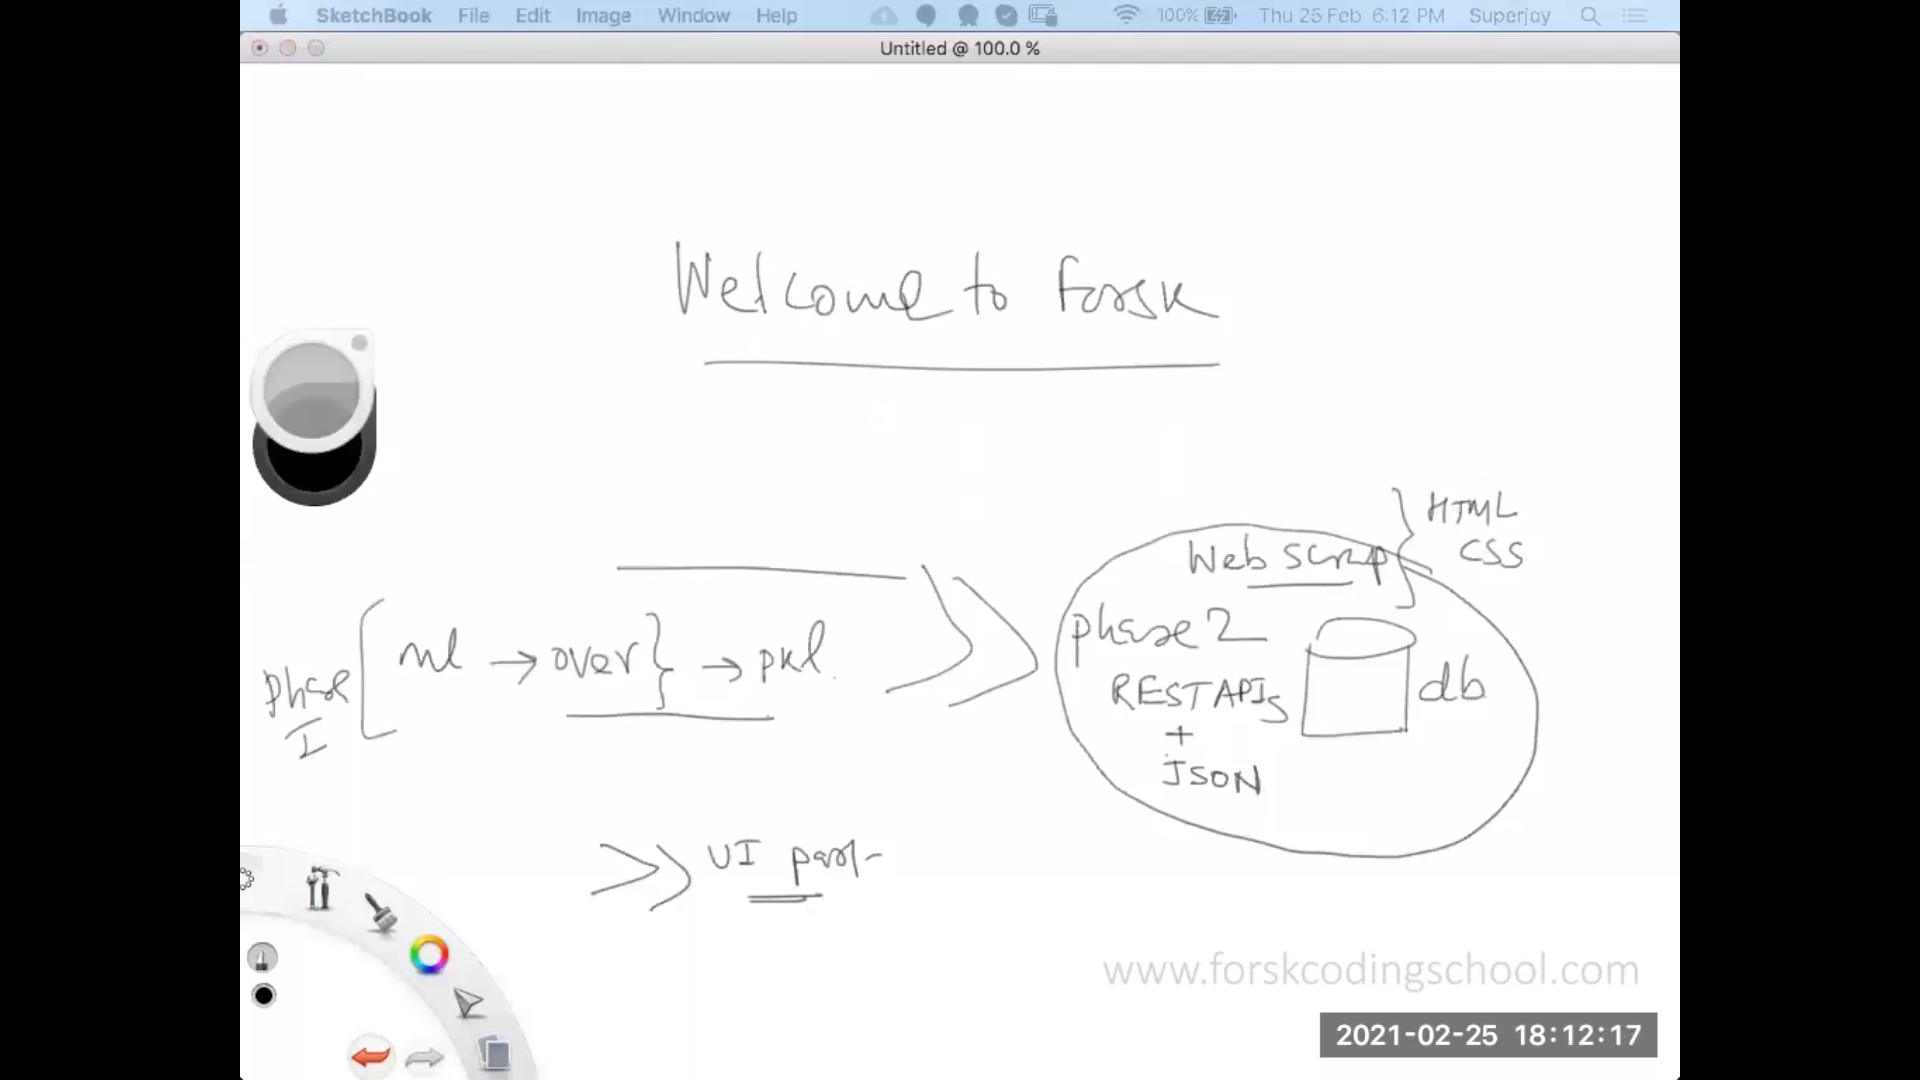 SketchBook File Edit Image Window Help 100% Thu 25 Feb 6:12 PM Superjoy
Untitled @ 100.0 %
Welcome to Forsk
HTML
CSS
Web scrap
phase 2
RESTAPIs
+
JSON
db
Phase
I
ml → over } → pkl
UI part
www.forskcodingschool.com
2021-02-25 18:12:17